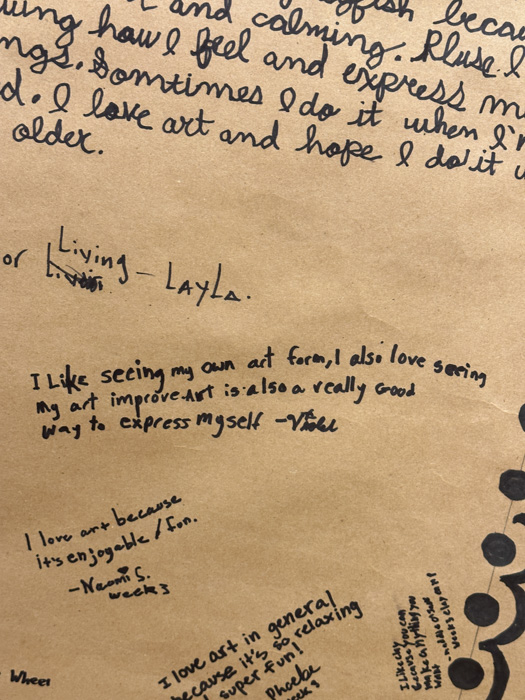 fish becau
and calming. Pluse I
wing how I feel and express m
ngs. Somtimes I do it when I'm
d. I love art and hope I do it w
older.
or Living - LAYLA.
I Like seeing my own art form, I also love seeing
my art improve. Art is also a really Good
way to express myself - Violet
I love art because
it's enjoyable / fun.
- Naomi S.
week 3
I love art in general
because it's so relaxing
super fun!
Phoebe
I like clay
because you can
make anything you
want
Wheel